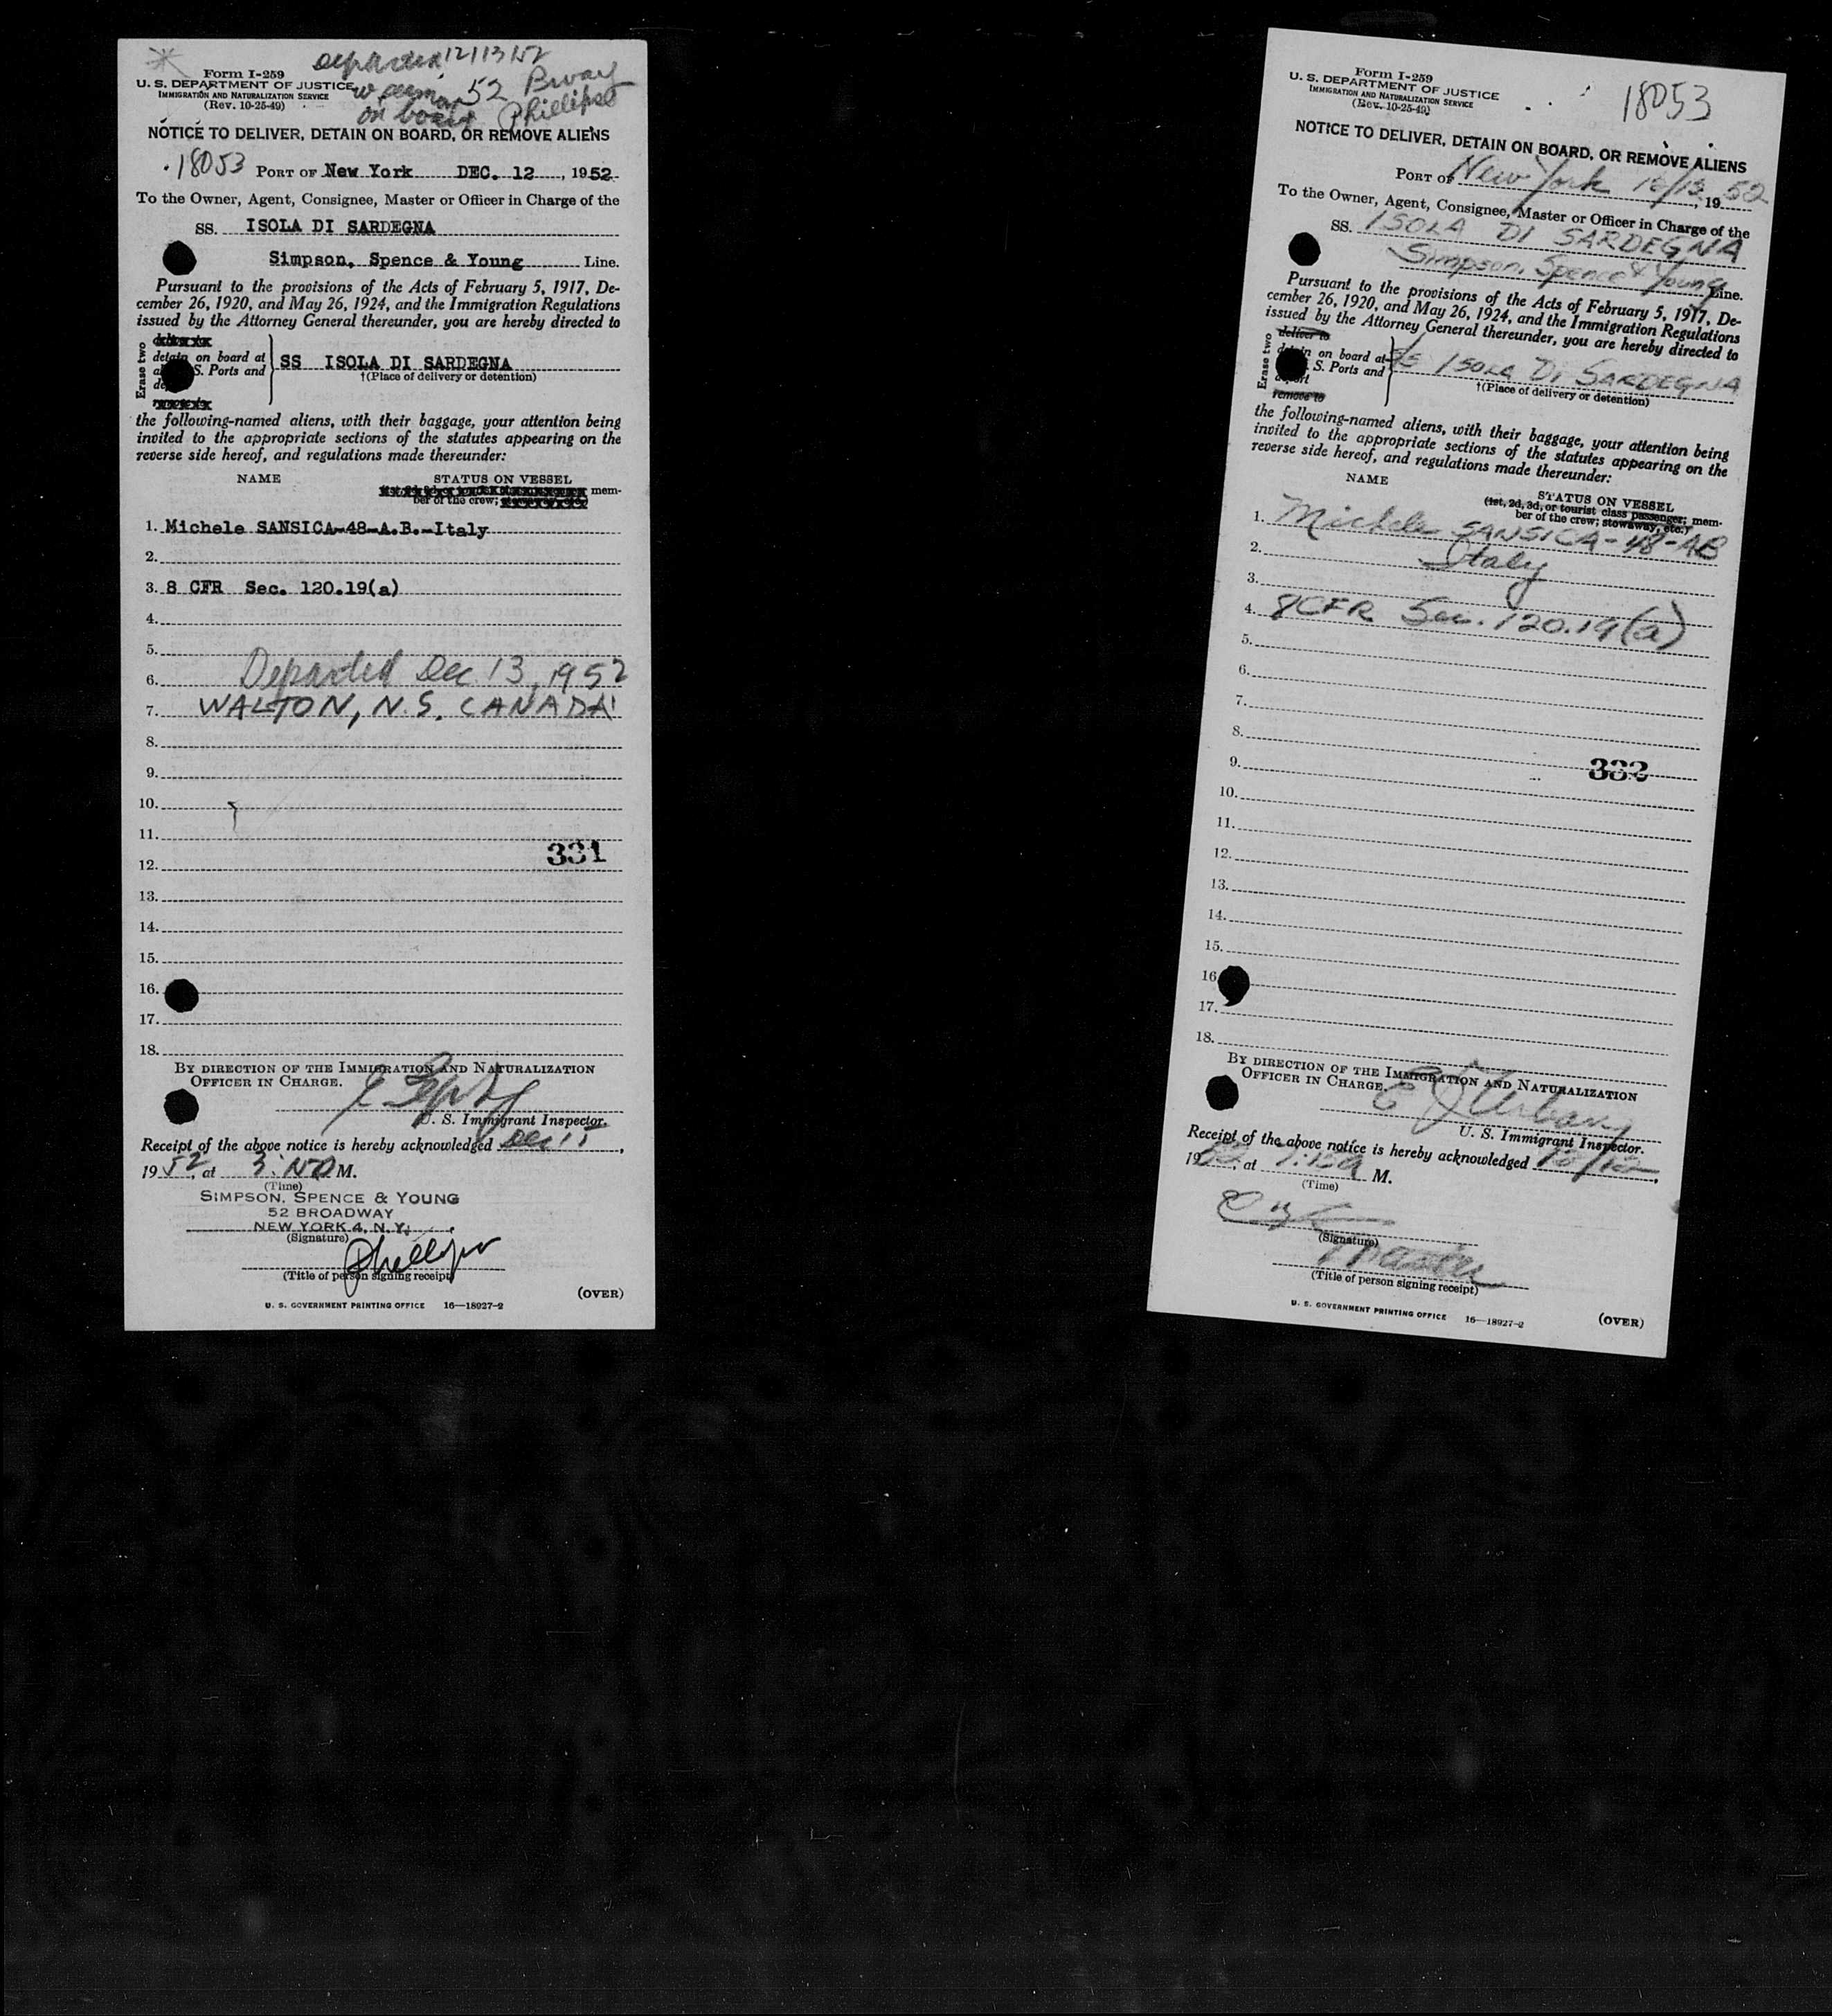 Departed 12/13/52
Form I-259
U. S. DEPARTMENT OF JUSTICE
52 Bway
IMMIGRATION AND NATURALIZATION SERVICE
(Rev. 10-25-49)
on board Phillips
NOTICE TO DELIVER, DETAIN ON BOARD, OR REMOVE ALIENS
18053 PORT OF New York DEC. 12, 1952
To the Owner, Agent, Consignee, Master or Officer in Charge of the
SS. ISOLA DI SARDEGNA
Simpson, Spence & Young Line.
Pursuant to the provisions of the Acts of February 5, 1917, De-
cember 26, 1920, and May 26, 1924, and the Immigration Regulations
issued by the Attorney General thereunder, you are hereby directed to
Erase two
detain on board at
S. Ports and
SS ISOLA DI SARDEGNA
†(Place of delivery or detention)
the following-named aliens, with their baggage, your attention being
invited to the appropriate sections of the statutes appearing on the
reverse side hereof, and regulations made thereunder:
NAME STATUS ON VESSEL
mem-
ber of the crew;
1. Michele SANSICA-48-A.B.-Italy
2.
3. 8 CFR Sec. 120.19(a)
4.
5.
6. Departed Dec 13, 1952
7. WALTON, N.S. CANADA
8.
9.
10.
11.
331
12.
13.
14.
15.
16.
17.
18.
BY DIRECTION OF THE IMMIGRATION AND NATURALIZATION
OFFICER IN CHARGE.
U. S. Immigrant Inspector.
Receipt of the above notice is hereby acknowledged Dec
1952, at M.
(Time)
SIMPSON, SPENCE & YOUNG
52 BROADWAY
NEW YORK 4, N.Y.
(Signature)
Phillips
(Title of person signing receipt)
(OVER)
U. S. GOVERNMENT PRINTING OFFICE 16—18927-2
Form I-259
U. S. DEPARTMENT OF JUSTICE
IMMIGRATION AND NATURALIZATION SERVICE
(Rev. 10-25-49)
18053
NOTICE TO DELIVER, DETAIN ON BOARD, OR REMOVE ALIENS
PORT OF New York 12/12, 1952
To the Owner, Agent, Consignee, Master or Officer in Charge of the
SS. ISOLA DI SARDEGNA
Simpson, Spence & Young Line.
Pursuant to the provisions of the Acts of February 5, 1917, De-
cember 26, 1920, and May 26, 1924, and the Immigration Regulations
issued by the Attorney General thereunder, you are hereby directed to
Erase two
deliver to
detain on board at
S. Ports and
deport
remove to
SS ISOLA DI SARDEGNA
†(Place of delivery or detention)
the following-named aliens, with their baggage, your attention being
invited to the appropriate sections of the statutes appearing on the
reverse side hereof, and regulations made thereunder:
NAME STATUS ON VESSEL
(1st, 2d, 3d, or tourist class passenger; mem-
ber of the crew; stowaway, etc.)
1. Michele SANSICA-48-AB
2. Italy
3.
4. 8 CFR Sec. 120.19(a)
5.
6.
7.
8.
332
9.
10.
11.
12.
13.
14.
15.
16
17.
18.
BY DIRECTION OF THE IMMIGRATION AND NATURALIZATION
OFFICER IN CHARGE.
U. S. Immigrant Inspector.
Receipt of the above notice is hereby acknowledged
19, at M.
(Time)
(Signature)
Master
(Title of person signing receipt)
U. S. GOVERNMENT PRINTING OFFICE 16—18927-2 (OVER)